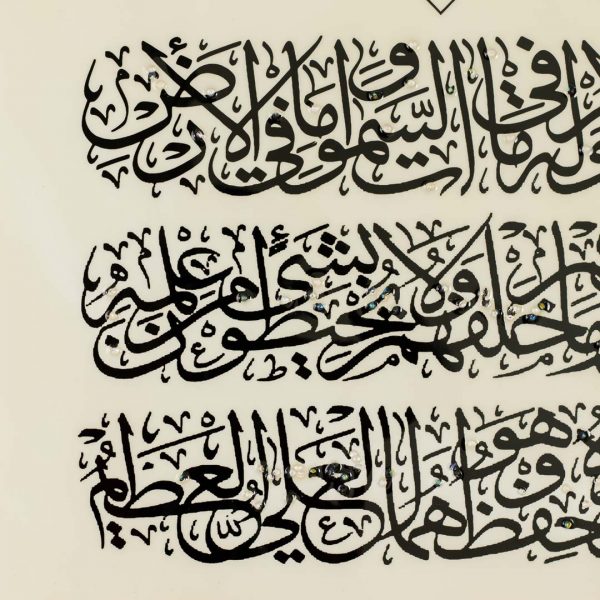 له ما في السموات وما في الأرض
خلفهم ولا يحيطون بشئ من علمه
حفظهما وهو العلي العظيم